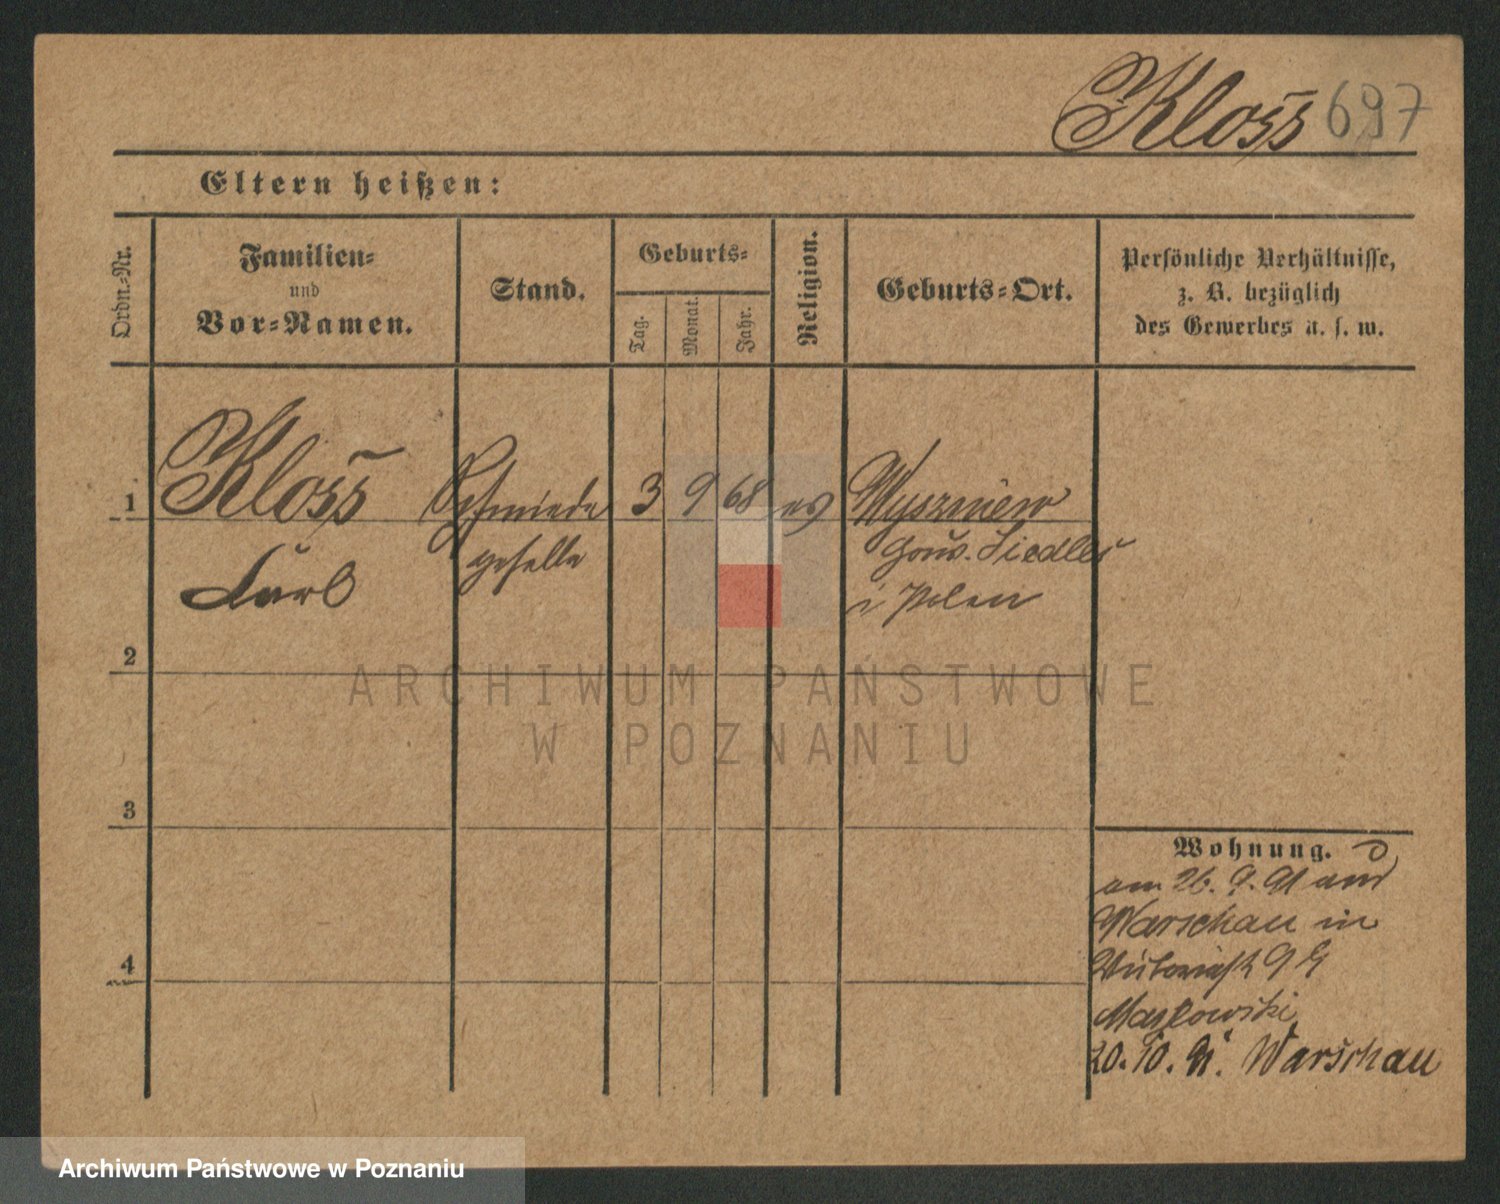 Kloss 697
Eltern heißen:
Ordn.-Nr.
Familien-
und
Vor-Namen.
Stand.
Geburts-
Tag.
Monat.
Jahr.
Religion.
Geburts-Ort.
Persönliche Verhältnisse,
z. B. bezüglich
des Gewerbes u. s. w.
1 Kloss Schmiede 3 9 68 ev
geselle
Carl
Gouv. Siedlec
i Polen
2
3
4
ARCHIWUM PAŃSTWOWE
W POZNANIU
Wohnung.
am 26. 9. 91 aus
Warschau in
20. 10. 91. Warschau
Archiwum Państwowe w Poznaniu